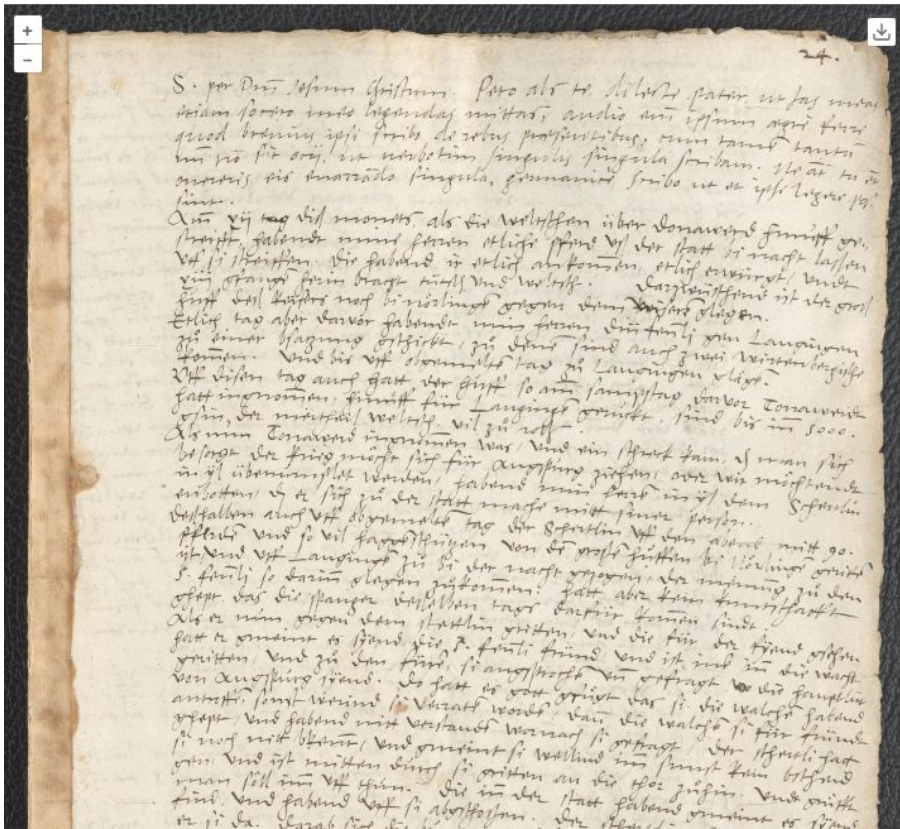 24.
S. per Dnm Jesum Christum. Peto abs te dilecte pater, ut has meas
etiam socero meo legendas mittas, audio enim ipsum aegre ferre
quod brevius ipsi scribo de rebus praesentibus, cum tamen tantum
mihi non sit ocii, ut verbotim singulis singula scribam. Ne at tu
onereris eis enarrando singula, germanice scribo ut et ipse legere
sint.
Am xij tag diß monets, als die weltschen über Donawerd hinuff ge-
streifft, habendt mine herren etliche pferd uß der statt bi nacht lassen
uff si streiffen. Die habend ir etlich ankommen, etlich erwürgt, undt
xiiij gfangen herin bracht tütsch und weltsch. Darzwüschend ist der groß
huff deß keysers noch bi nörlingen gegen dem unsern glegen.
Etlich tag aber darvor habendt min herren drü fenli gen Laugingen
zu einer bsatzung gschickt, zu denen sind auch zwei wirtenbergische
kommen. und bis uff obgemelten tag zu Laugingen glägen.
Uff disen tag auch hatt der huff so am sampstag darvor Tonawerdt
hatt ingnomen, hinuff für Laugingen geruckt, sind bis in 5000.
gsin, der mertheil weltsch, vil zu roß.
Als nun Tonawerd ingnomen was, und ein schreck kam, dz man sich
besorgt der krieg möcht sich für Augspurg ziehen, oder wir möchtendt
in yl überrumplet werden, habend min herren in yl dem Schertlin
enbotten, dz er sich zu der statt mache mitt siner person.
Deßhalben auch uff obgemelten tag der Schertlin uff den abend mitt 90.
pferden und so vil haggeschützen von dem großen huffen bi Nörlingen geritten
ist und uff Laugingen zu bi der nacht gezogen, der meinung zu den
5. fenli so darinn glegen zukommen: hatt aber kein kuntschafft
ghept das die spanger desselben tags darfür komen sindt.
Als er nun gegen dem stettlin gritten, und die für der fyend gsehen
hatt er gmeint es syend die 5. fenli fründ und ist ins inn die wacht
geritten, und zu den füren, si angsprochen und gefragt wo die hauptlüt
von Augspurg syend. Do hatt es gott gfügt das si die walchen habend
antroffen, sonst werind si verraten worden, dann die walchen si für fründt
ghept, und habend nitt verstanden warnach si gefragt. Der schertli hatt
si noch nitt bkennt, und gmeint si wellind im sunst kein bscheid
gen, und ist mitten durch si gritten an die thor zuhin, und grüfft
man söll imm uff thun. Die in der statt habend gmeint es syend
find, und habend uff si abgschoßen. Der
er si da.